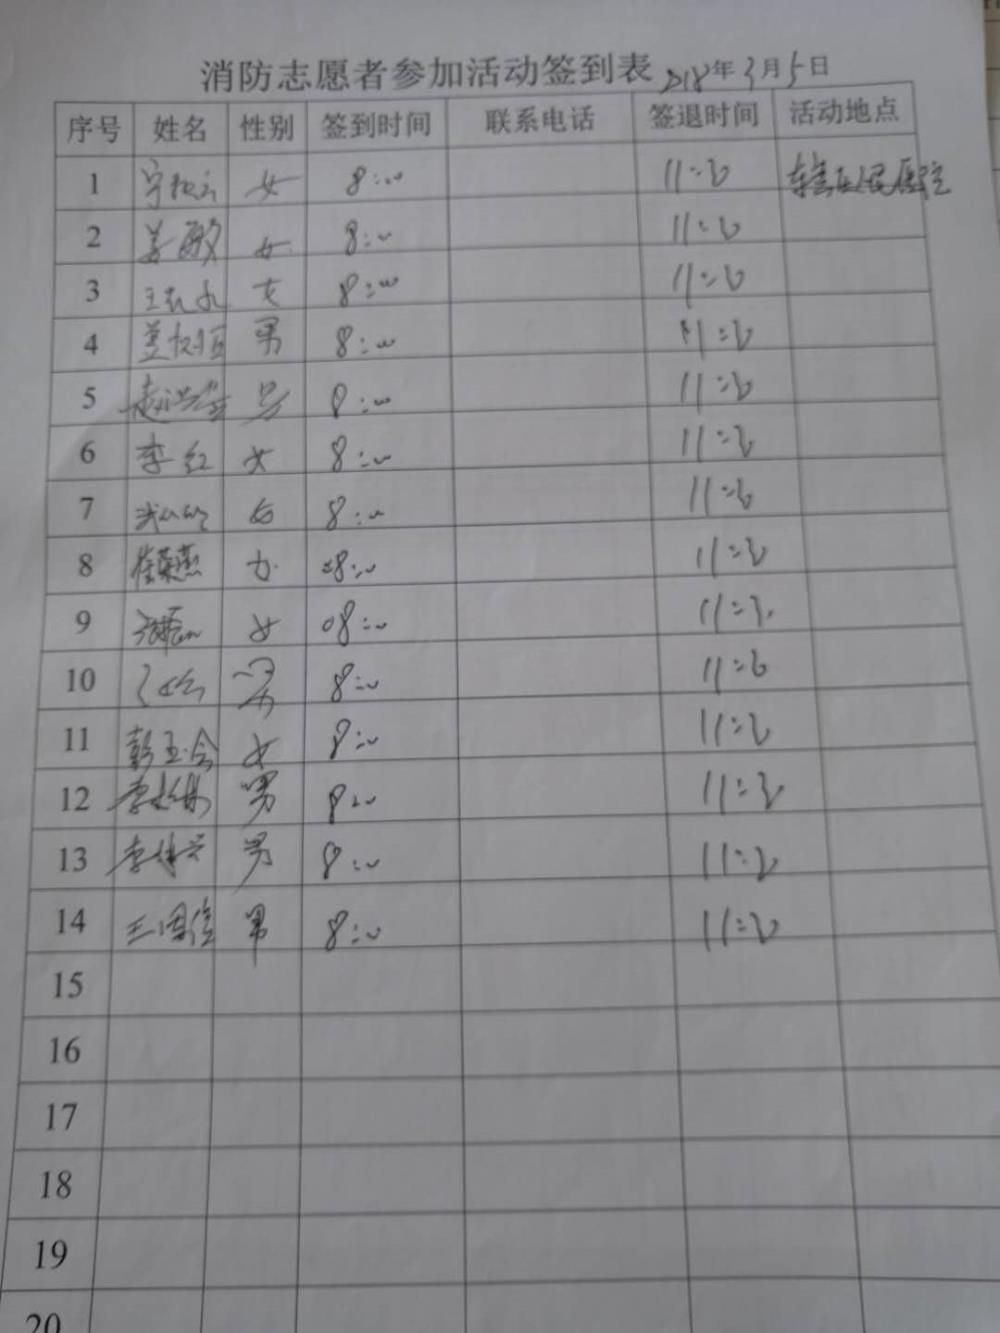 消防志愿者参加活动签到表 2018年3月5日
序号 姓名 性别 签到时间 联系电话 签退时间 活动地点
1 女 8:00 11:00 人民医院
2 姜敏 女 8:00 11:00
3 女 8:00 11:00
4 男 8:00 11:00
5 赵洪 男 8:00 11:00
6 李红 女 8:00 11:00
7 女 8:00 11:00
8 崔荣燕 女 08:00 11:00
9 女 08:00 11:00
10 男 8:00 11:00
11 彭玉会 女 8:00 11:00
12 李 男 8:00 11:00
13 李 男 8:00 11:00
14 王国信 男 8:00 11:00
15
16
17
18
19
20